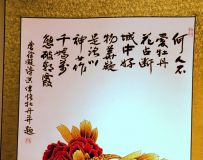 何人不
爱牡丹
花占断
城中好
物华疑
是洛川
神女作
千娇万
态破朝霞
唐徐凝诗
牡丹
题